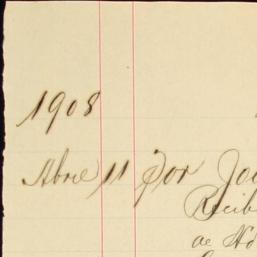 1908
Abril 11 Por Jo
Recib
de